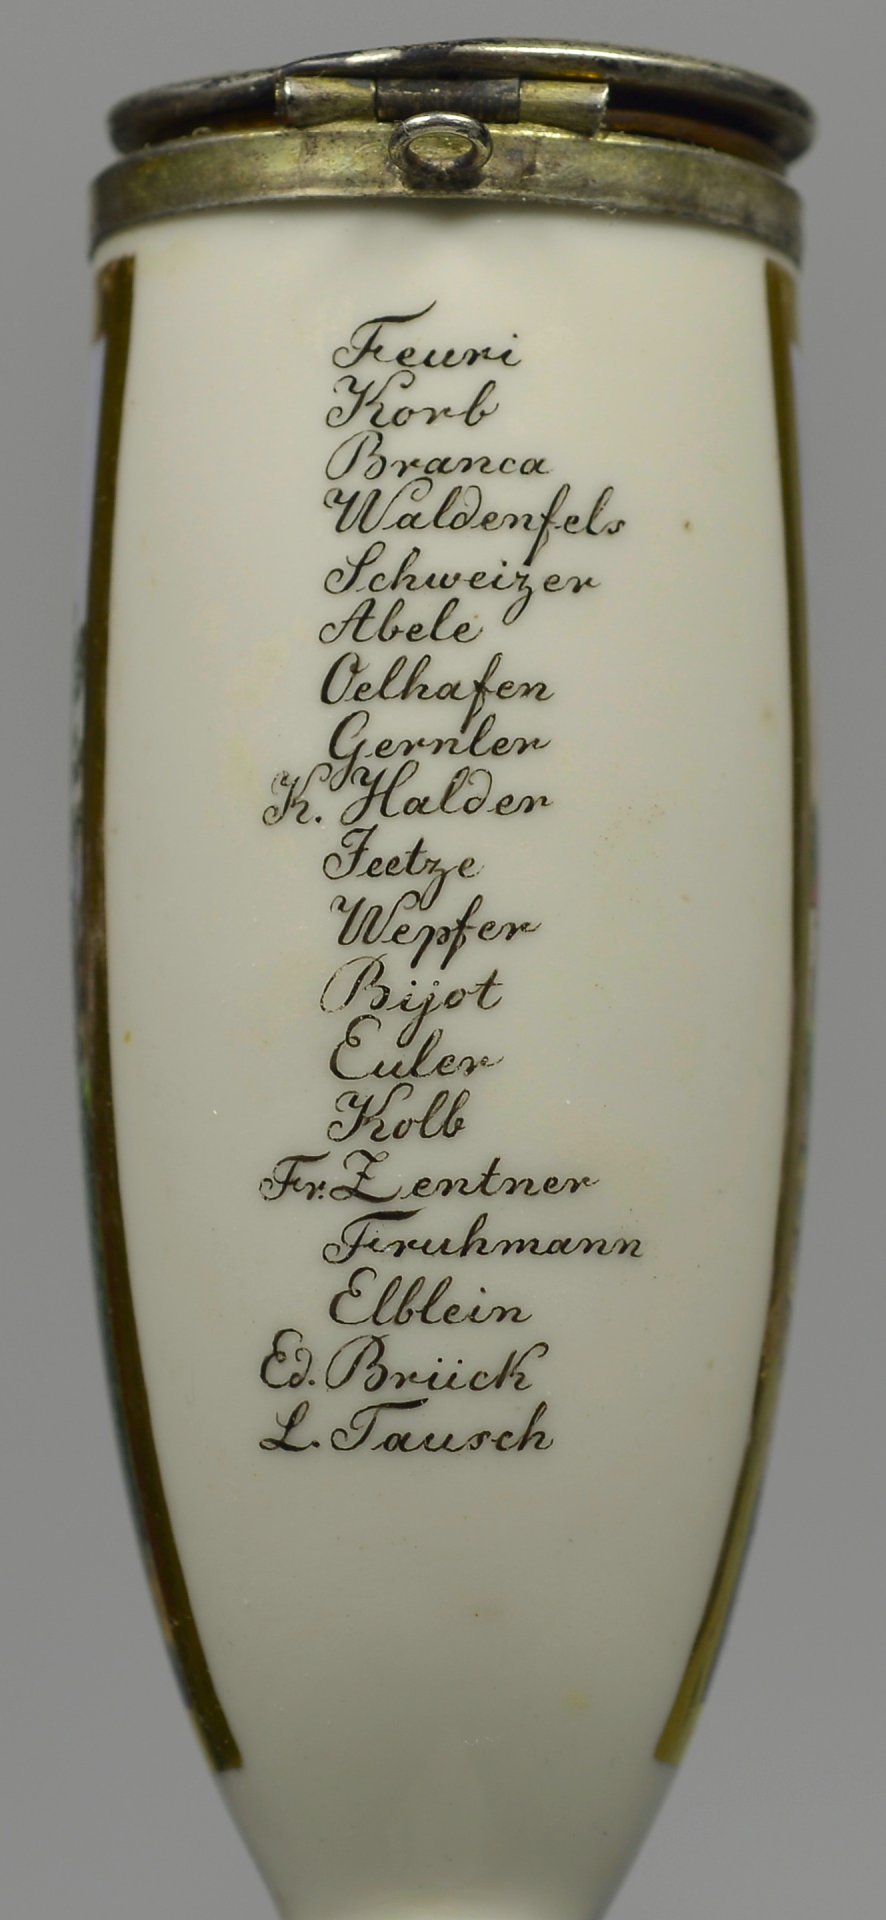 Feuri
Korb
Branca
Waldenfels
Schweizer
Abele
Oelhafen
Gernler
K. Halder
Jeetze
Wepfer
Bijot
Euler
Kolb
Fr. Zentner
Fruhmann
Elblein
Ed. Brück
L. Tausch